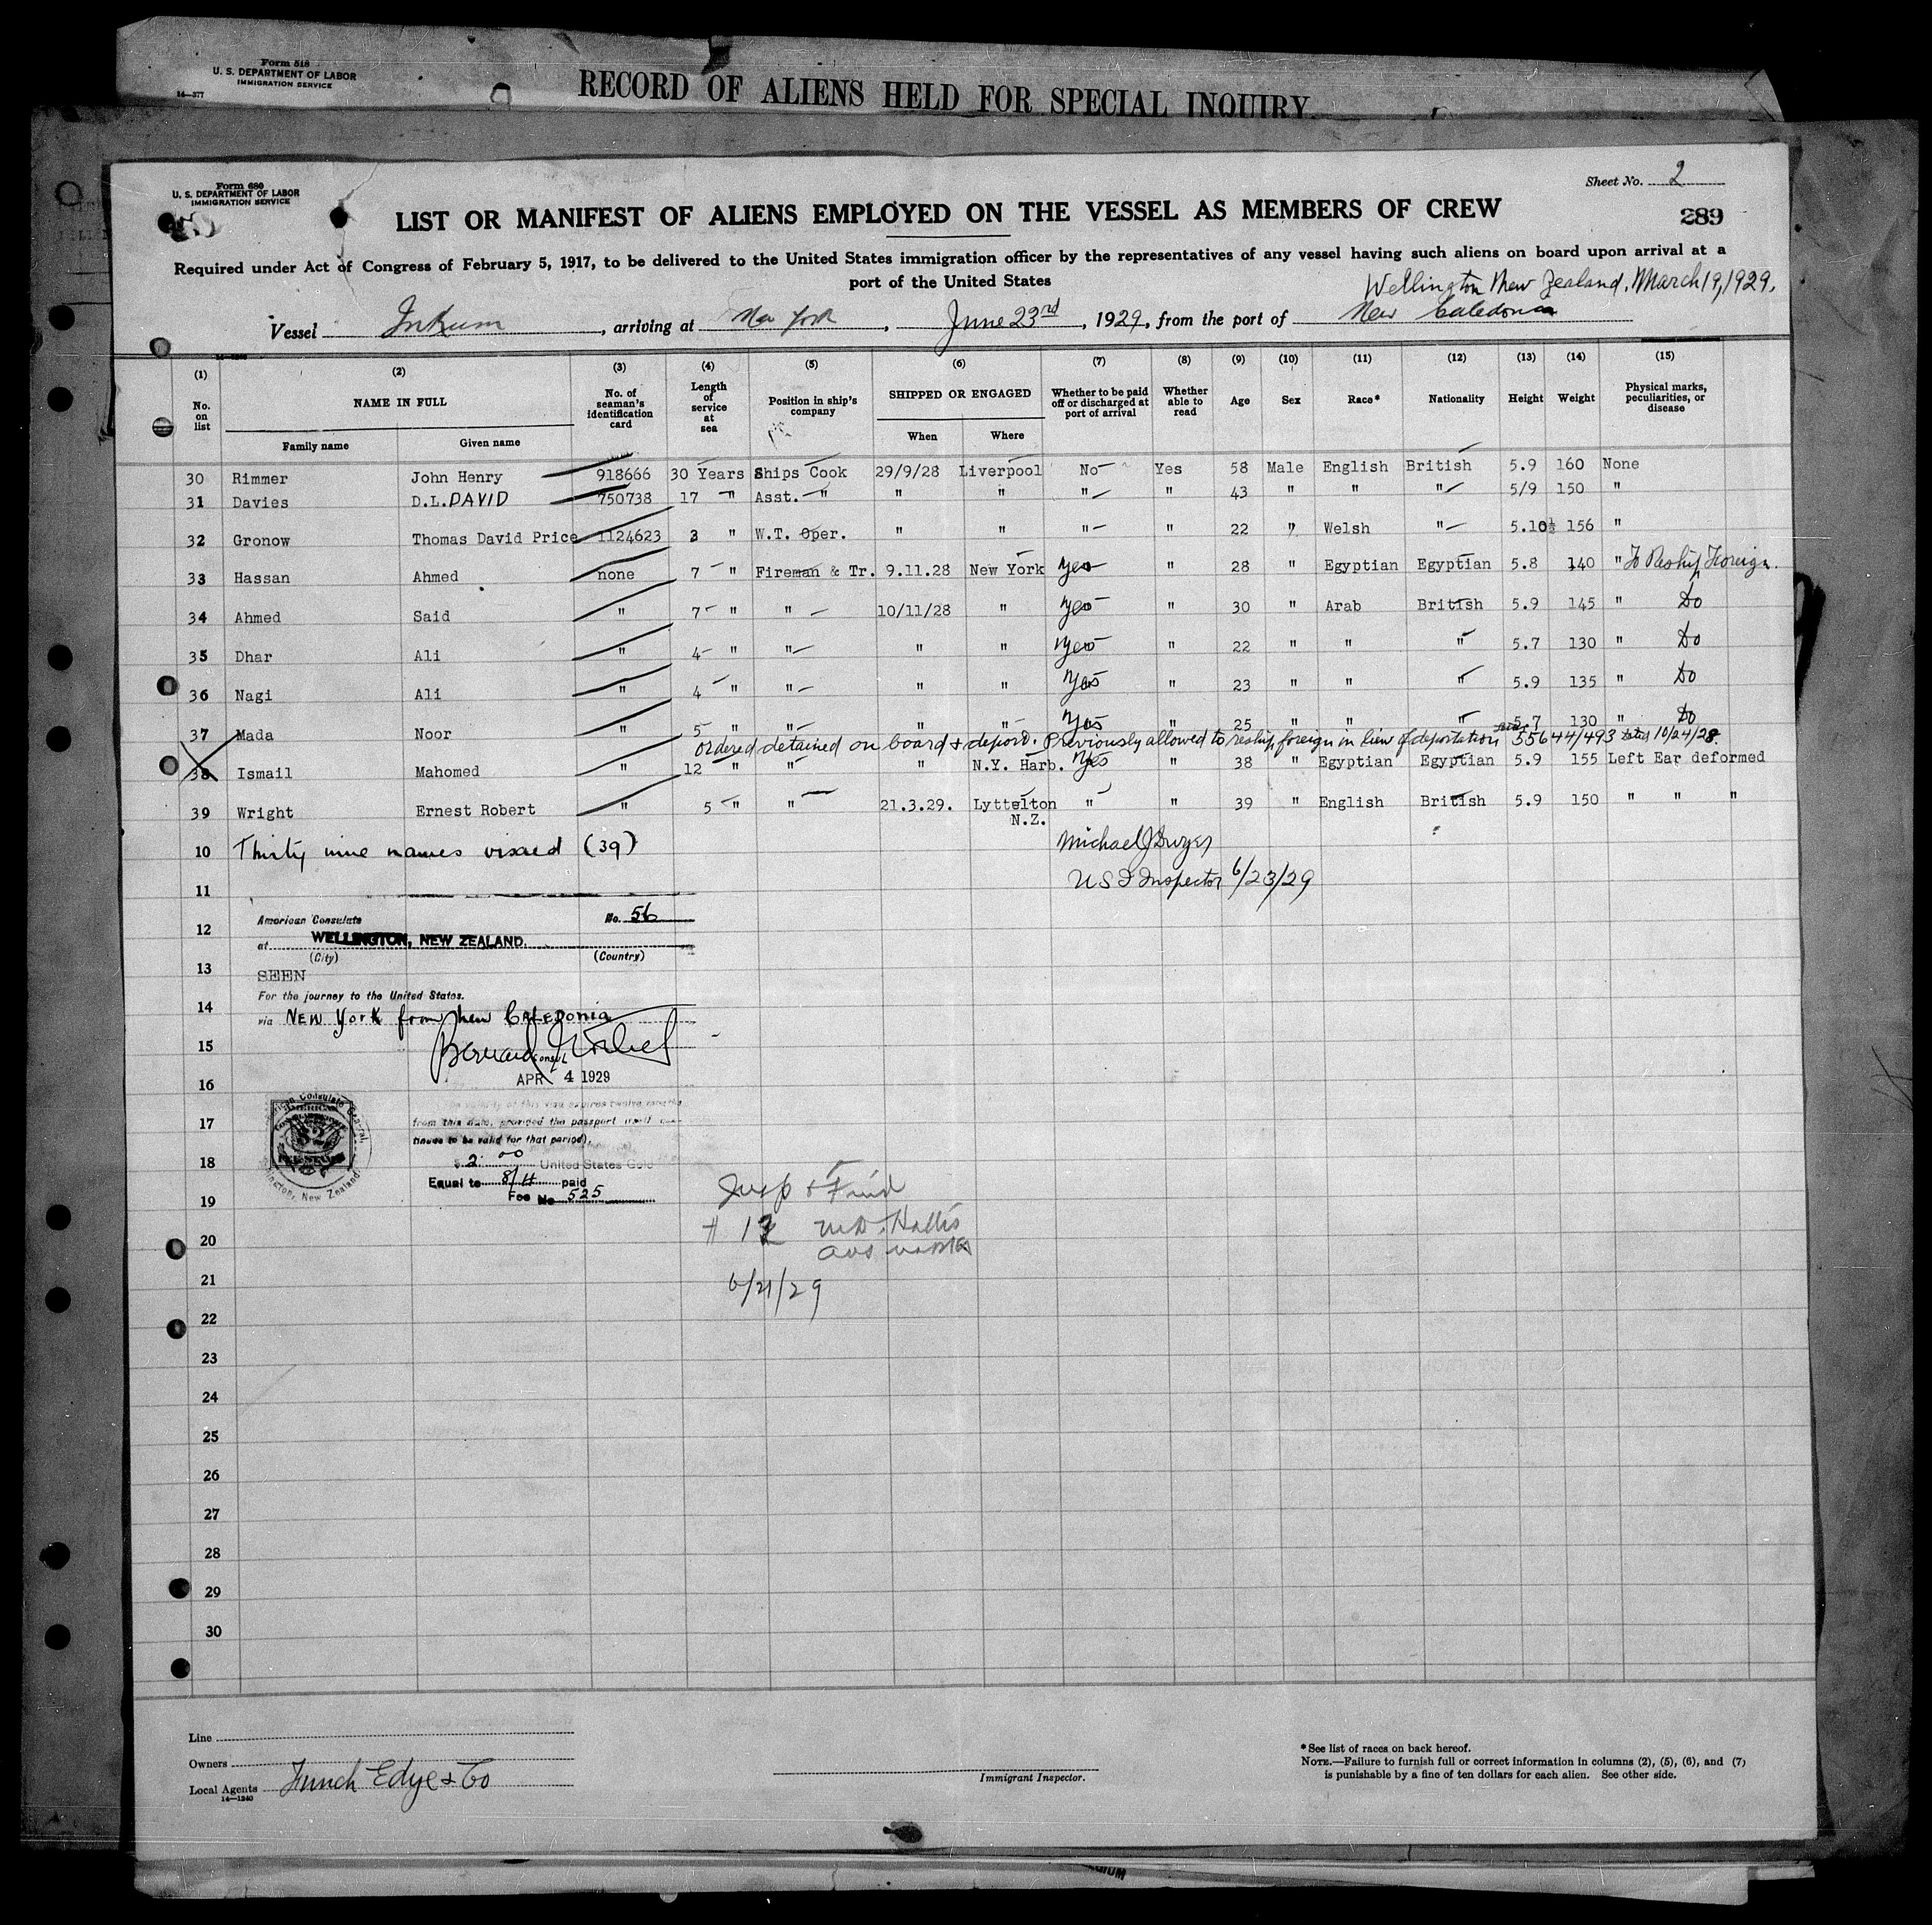 Form 518
U. S. DEPARTMENT OF LABOR
IMMIGRATION SERVICE
14—577
RECORD OF ALIENS HELD FOR SPECIAL INQUIRY
Form 680
U. S. DEPARTMENT OF LABOR
IMMIGRATION SERVICE
Sheet No. 2
289
LIST OR MANIFEST OF ALIENS EMPLOYED ON THE VESSEL AS MEMBERS OF CREW
Required under Act of Congress of February 5, 1917, to be delivered to the United States immigration officer by the representatives of any vessel having such aliens on board upon arrival at a
port of the United States
Wellington New Zealand, March 19, 1929,
Vessel Inkum, arriving at New York, June 23rd, 1929, from the port of New Caledonia
(1) (2) (3) (4) (5) (6) (7) (8) (9) (10) (11) (12) (13) (14) (15)
No. on list
NAME IN FULL
Family name Given name
No. of seaman's identification card
Length of service at sea
Position in ship's company
SHIPPED OR ENGAGED
When Where
Whether to be paid off or discharged at port of arrival
Whether able to read
Age
Sex
Race*
Nationality
Height
Weight
Physical marks, peculiarities, or disease
30 Rimmer John Henry 918666 30 Years Ships Cook 29/9/28 Liverpool No Yes 58 Male English British 5.9 160 None
31 Davies D.L. DAVID 750738 17 " Asst. " " " " " 43 " " " 5/9 150 "
32 Gronow Thomas David Price 1124623 3 " W.T. Oper. " " " " 22 " Welsh " 5.10½ 156 "
33 Hassan Ahmed none 7 " Fireman & Tr. 9.11.28 New York Yes " 28 " Egyptian Egyptian 5.8 140 " To Reship Foreign.
34 Ahmed Said " 7 " " 10/11/28 " Yes " 30 " Arab British 5.9 145 " Do
35 Dhar Ali " 4 " " " " Yes " 22 " " " 5.7 130 " Do
36 Nagi Ali " 4 " " " " Yes " 23 " " " 5.9 135 " Do
37 Mada Noor " 5 " " " " Yes " 25 " " " 5.7 130 " Do
Ordered detained on board & deport. Previously allowed to reship foreign in lieu of deportation 55644/493 dated 10/24/28.
38 Ismail Mahomed " 12 " " " N.Y. Harb. Yes " 38 " Egyptian Egyptian 5.9 155 Left Ear deformed
39 Wright Ernest Robert " 5 " " 21.3.29. Lyttelton " " 39 " English British 5.9 150 " " "
N.Z.
10 Thirty nine names visaed (39) Michael J Dwyer
11 U S I Inspector 6/23/29
American Consulate No. 56
12
at WELLINGTON, NEW ZEALAND.
(City) (Country)
13
SEEN
For the journey to the United States.
14
via NEW YORK from New CALEDONIA
15
Consul
APR 4 1929
16
The validity of this visa expires twelve months
17 from this date, provided the passport itself con-
tinues to be valid for that period).
18 $ 2.00 United States Gold
Equal to 8/4 paid
19 Fee No 525
Insp + Find
# 12 M.D. Hallis
20
21 6/21/29
22
23
24
25
26
27
28
29
30
Line
Owners
Local Agents Funch Edye & Co
14—1240
Immigrant Inspector.
*See list of races on back hereof.
NOTE.—Failure to furnish full or correct information in columns (2), (5), (6), and (7)
is punishable by a fine of ten dollars for each alien. See other side.